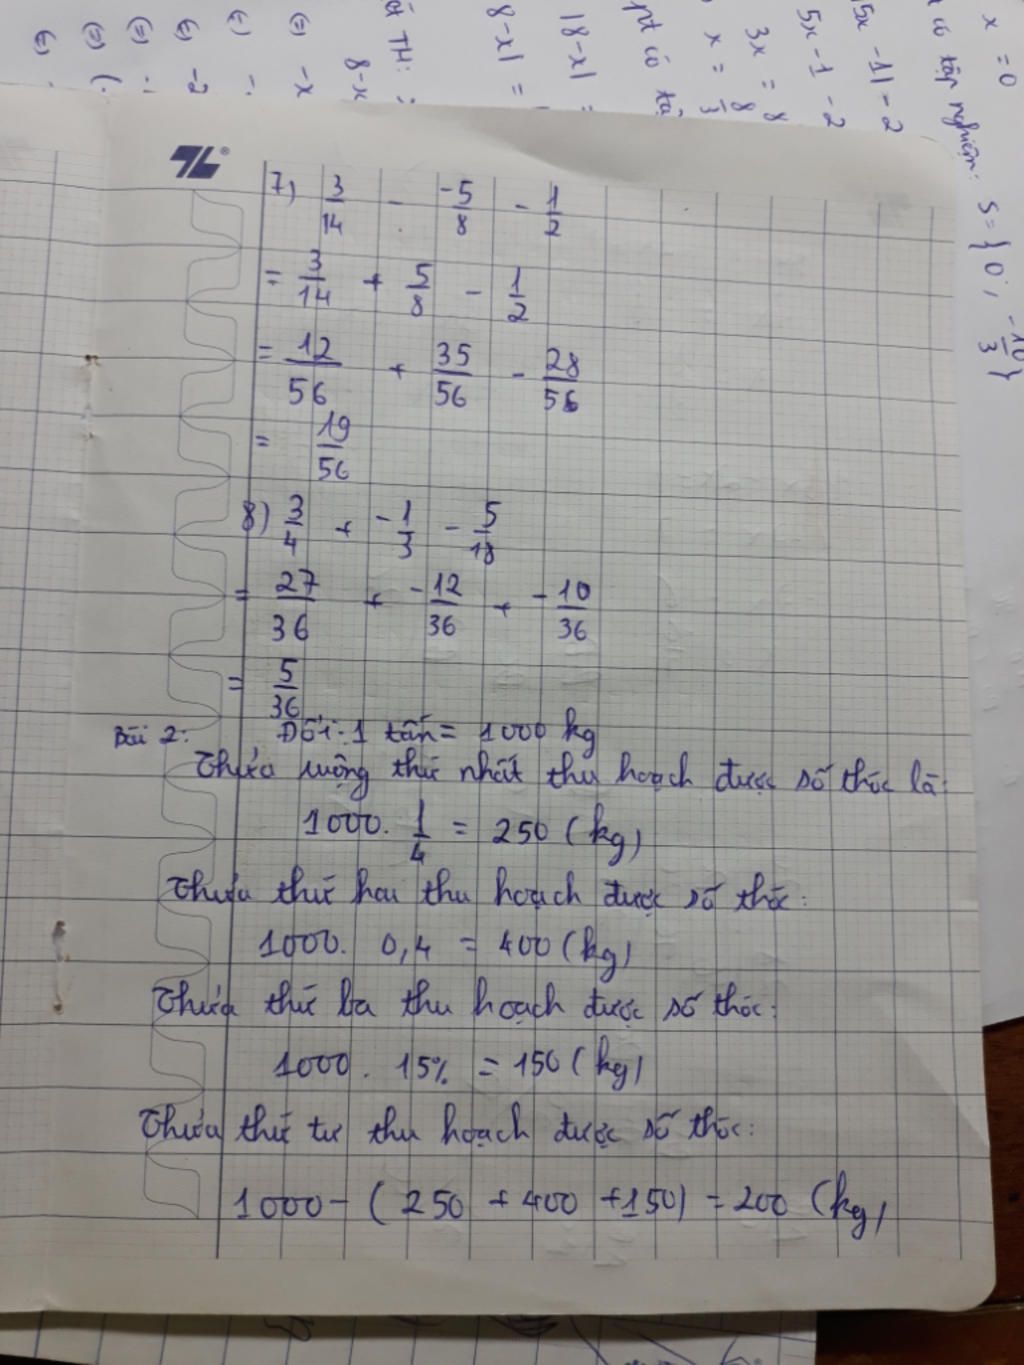 7) 3/14 - -5/8 - 1/2
= 3/14 + 5/8 - 1/2
= 12/56 + 35/56 - 28/56
= 19/56
8) 3/4 + -1/3 - 5/18
= 27/36 + -12/36 + -10/36
= 5/36
Bài 2: Đổi: 1 tấn = 1000 kg
Thửa ruộng thứ nhất thu hoạch được số thóc là:
1000. 1/4 = 250 (kg)
Thửa thứ hai thu hoạch được số thóc:
1000. 0,4 = 400 (kg)
Thửa thứ ba thu hoạch được số thóc:
1000. 15% = 150 (kg)
Thửa thứ tư thu hoạch được số thóc:
1000 - (250 + 400 + 150) = 200 (kg)
x = 0
có tập nghiệm: S = {0; -10/3}
5x - 1 - 2
3x = 8
x = 8/3
pt có
|8-x| =
8-x
TH: